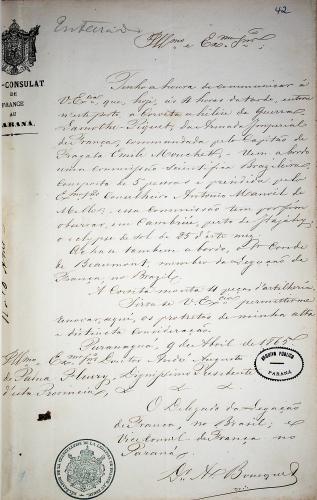 42
Inteirado
Illmo e Exmo Snr.
-CONSULAT
DE
FRANCE
AU
PARANÁ.
Tenho a honra de communicar á
V. Exa que, hoje, ás 4 horas da tarde, entrou
n'este porto, a Corveta a helice de Guerra,
Lamothe-Piquet, da Armada Imperial
de França, commandada pelo Capitão de
Fragata Emile Mouchet. - Vem a bordo
uma Commissão Scientifica Brazileira,
composta de 5 pessoas e prezidida pelo
Exmo Snr Conselheiro Antonio Manoel de
Mello; essa Commissão tem por fim
observar, em Camboriú, perto de Itajahy,
o eclypse do Sol de 25 d'este mez.
Acha-se tambem a bordo, o Snr Conde
de Beaumont, membro da Legação de
França, no Brazil.
A Corveta monta 4 peças d'artilheria.
Sirva-se V. Exa permittir-me
renovar, aqui, os protestos de minha alta
e distincta consideração.
Paranaguá 9 de Abril de 1865
Illmo Exmo Snr Doutor André Augusto
de Padua Fleury, Dignissimo Presidente
d'esta Provincia
O Delegado da Legação
de França, no Brazil; e
Vice Consul de França no
Paraná
ARCHIVO PUBLICO
PARANÁ